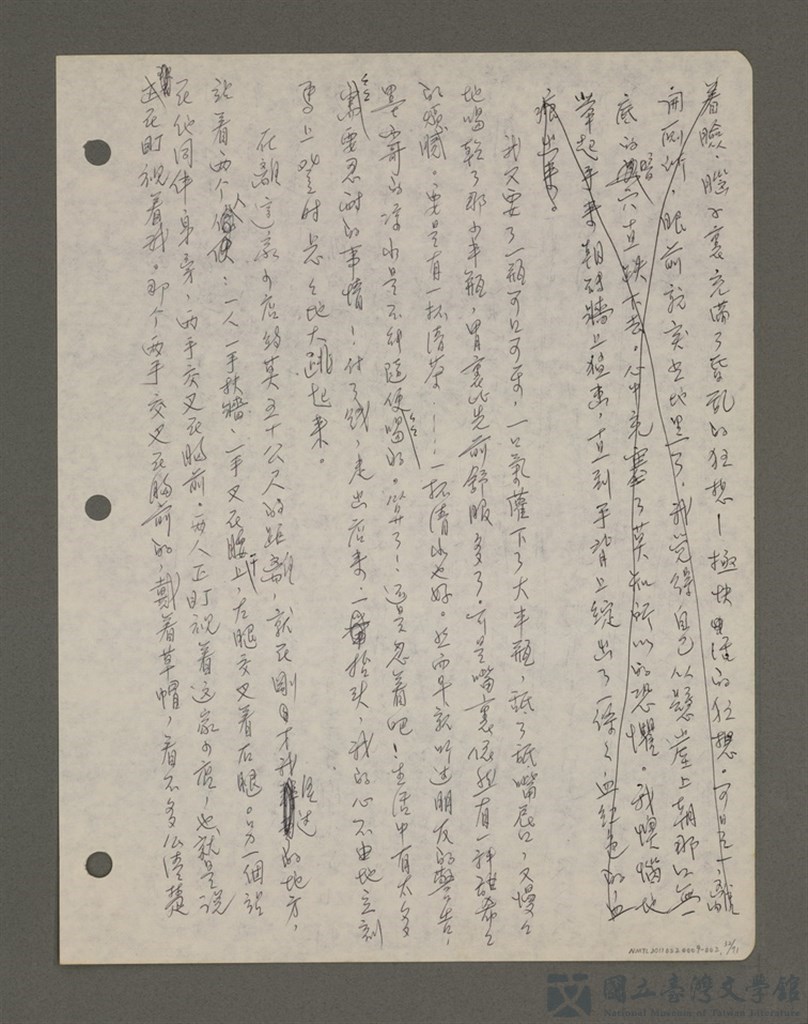 着臉,腦子裏充滿了昏亂的狂想—極快的狂想。可是一離
開廁所,眼前就突然地黑了,我覺得自己從懸崖上朝那口無
底的暗穴直跌下去。心中充塞了莫知所以的恐懼。我懊惱地
掌起手來朝磚牆上猛擊,直到手背上綻出了一條條血紅色的血
痕出來。
我又要了一瓶可口可樂,一口氣灌下了大半瓶,舐了舐嘴唇,又慢慢
地喝乾了那小半瓶,胃裏比先前舒服多了。可是嘴裏依然有一種甜黏黏
的感覺。要是有一杯清茶……一杯清水也好。然而早就听过朋友的警告,
墨西哥的涼水是不能隨便喝的。算了!還是忍着吧!生活中有太多
需要忍耐的事情!付了錢,走出店來,一抬头,我的心不由地立刻
馬上登时忐忑地大跳起來。
在離這家小店約莫五十公尺的距離,就在剛才我經过的地方,
站着两个人:一人一手扶牆,一手叉在腰上,左腿交叉着右腿。另一個站
在他同伴身旁,两手交叉在胸前。两人正盯視着这家小店,也就是說
正在盯視着我。那个两手交叉在胸前的,戴着草帽,看不多么清楚
NMTL20110520009-002, 12/71
國立臺灣文學館
National Museum of Taiwan Literature